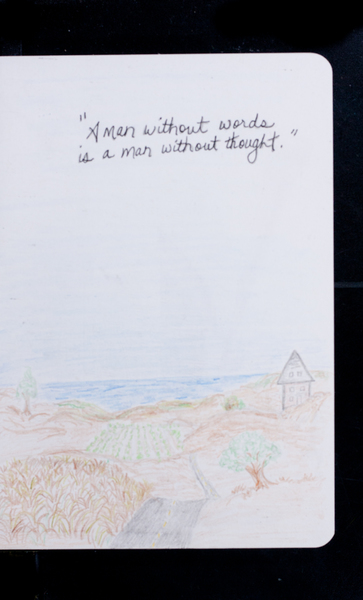 "A man without words
is a man without thought."